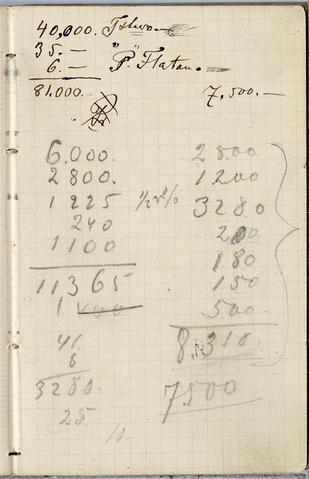 40,000. Tstwo.—
35.— " "
6.— "P." Flatau.
81.000. 7,500.—
6.000. 2800
2800. 1200
1225 1/2 % 3280
240 200
1100 180
11365 150
1 500
41. 8,310
8 7500
3280.
25
10.